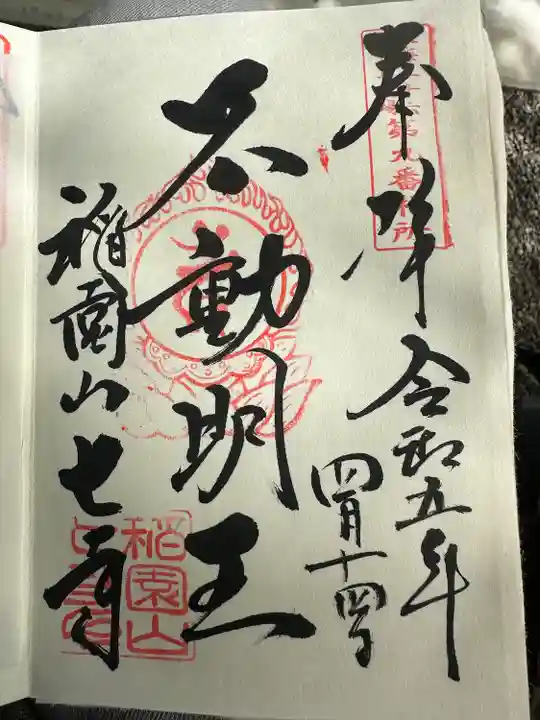 奉拝
令和五年
四月十四日
不動明王
稲園山七寺
第九番札所
稲園山